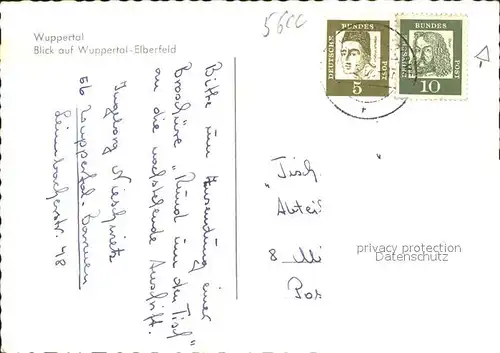 Wuppertal
Blick auf Wuppertal-Elberfeld
56
DEUTSCHE
BUNDES
POST
5
DEUTSCHE
BUNDES
POST
10
Bitte um Zusendung einer
Broschüre „Rund um den Tisch"
an die nachstehende Anschrift.
Ingeborg
56 Wuppertal-Barmen
48
„Tisch "
Abtei
8 Mü
Pos
privacy protection
Datenschutz